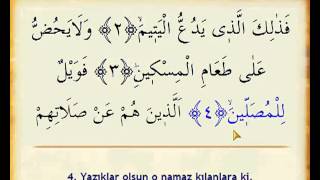 فَذٰلِكَ الَّذ۪ي يَدُعُّ الْيَت۪يمَۙ ﴿٢﴾ وَلَا يَحُضُّ
عَلٰى طَعَامِ الْمِسْك۪ينِۜ ﴿٣﴾ فَوَيْلٌ
لِلْمُصَلّ۪ينَۙ ﴿٤﴾ اَلَّذ۪ينَ هُمْ عَنْ صَلَاتِهِمْ
4. Yazıklar olsun o namaz kılanlara ki,